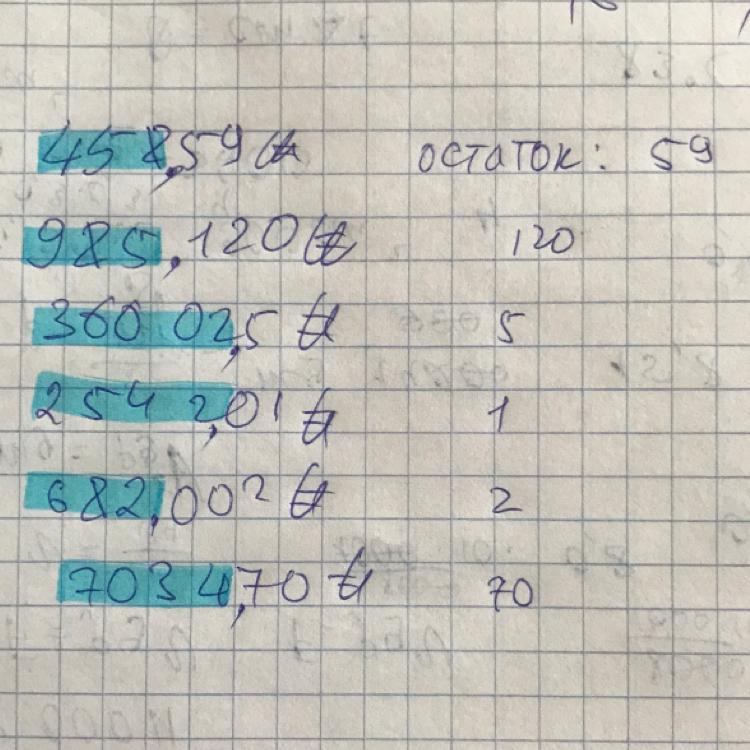 458,59 ц остаток: 59
985,120 ц 120
360 02,5 ц 5
254 2,01 ц 1
682,002 ц 2
703 4,70 ц 70